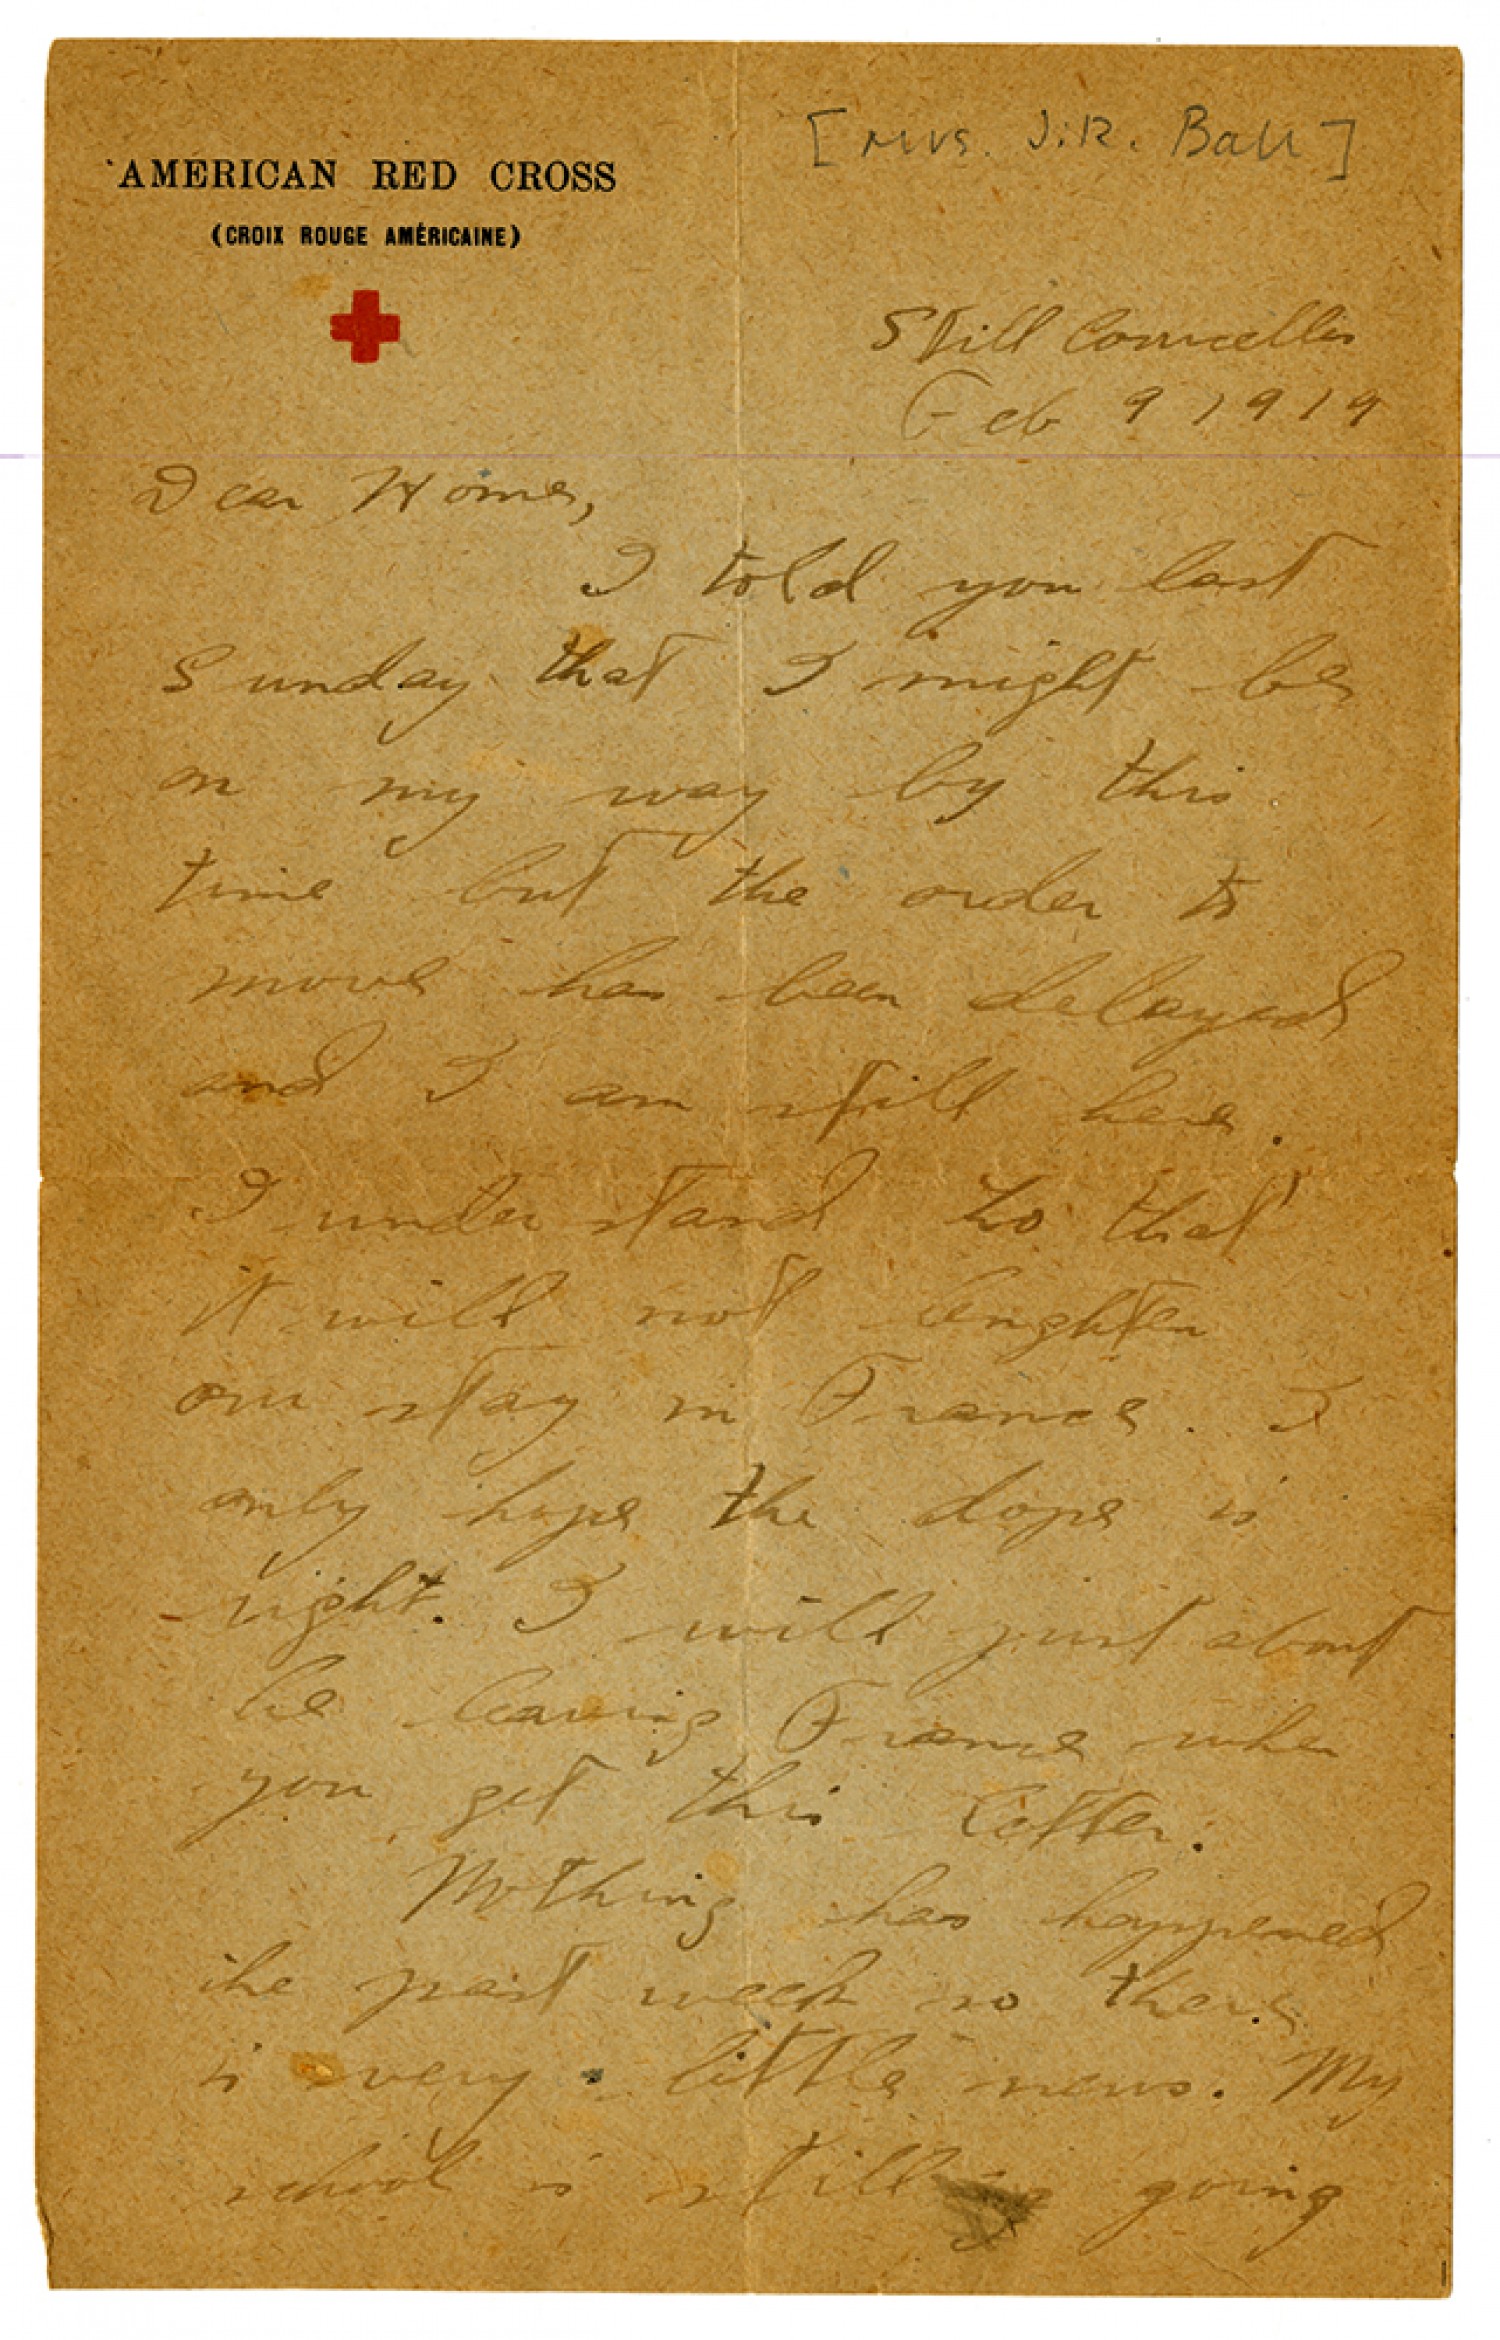 [Mrs. J.R. Ball]
AMERICAN RED CROSS
(CROIX ROUGE AMÉRICAINE)
Still
Feb 9 1919
Dear Home,
I told you last
Sunday that I might be
on my way by this
time but the order to
move has been delayed
and I am still here.
I understand tho that
it will not lenghten
our stay in France. I
only hope the dope is
right. I will just about
be leaving France when
you get this letter.
Nothing has happened
the past week so there
is very little news. My
school is still going